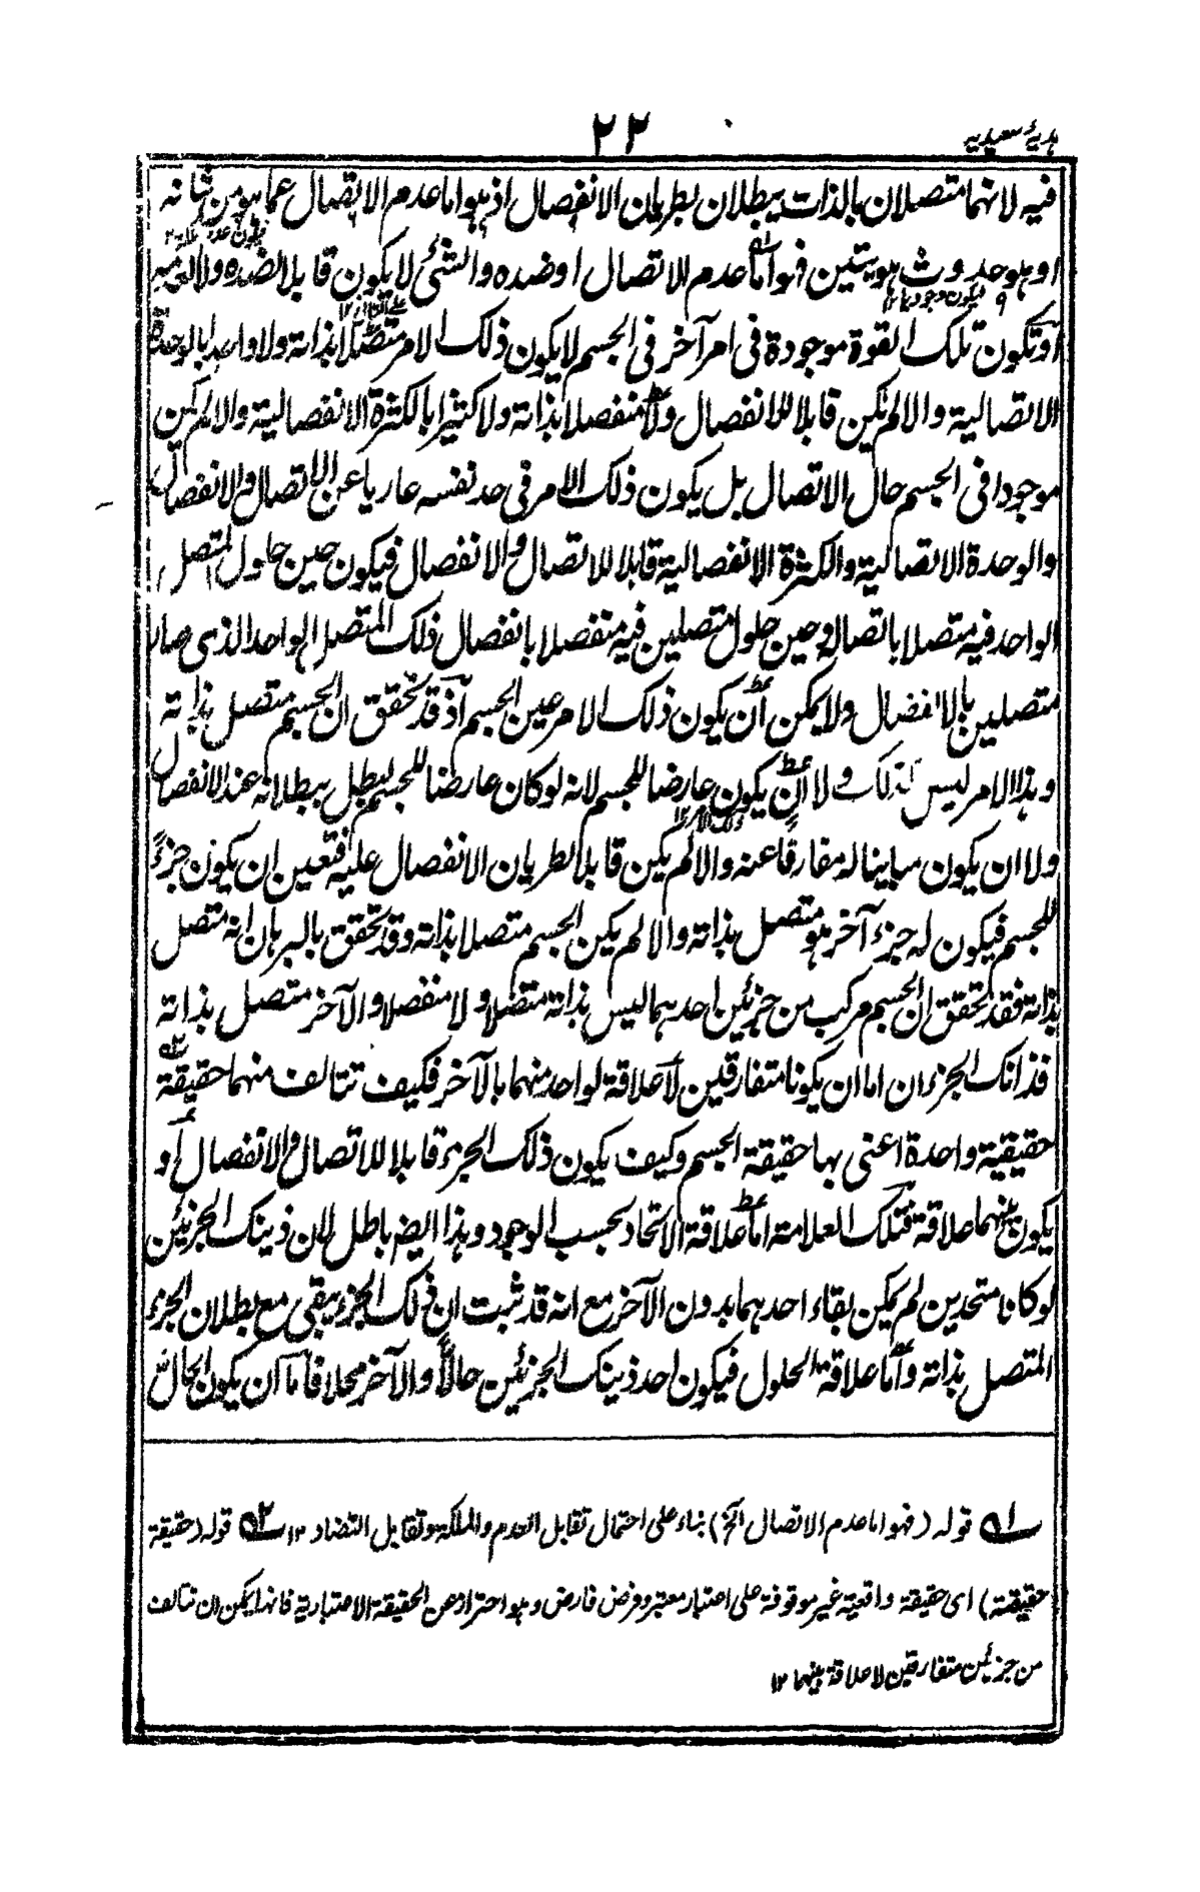 هديۂ سعيديه
٢٢
فيه لانهما متصلان بالذات يبطلان بطريان الانفصال اذ هو اما عدم الاتصال عما هو من شانه
او هو حدوث هويتين فهو اما عدم للاتصال او ضده والشئ لا يكون قابلا لضده ولا لعدمه
او تكون تلك القوة موجودة فى امر آخر فى الجسم لا يكون ذلك الامر متصلا بذاته ولا واحدا بالوحدة
الاتصالية والا لم يكن قابلا للانفصال ولا منفصلا بذاته ولا كثيرا بالكثرة الانفصالية والا لم يكن
موجودا فى الجسم حال الاتصال بل يكون ذلك الامر فى حد نفسه عاريا عن الاتصال والانفصال
والوحدة الاتصالية والكثرة الانفصالية قابلا للاتصال والانفصال فيكون حين حلول المتصل
الواحد فيه متصلا باتصاله وحين حلول متصلين فيه منفصلا بانفصال ذلك المتصل الواحد الذى صار
متصلين بالانفصال ولا يمكن ان يكون ذلك الامر عين الجسم اذ قد تحقق ان الجسم متصل بذاته
وهذا الامر ليس كذلك ولا ان يكون عارضا للجسم لانه لو كان عارضا للجسم لبطل ببطلانه عند الانفصال
ولا ان يكون مباينا له مفارقا عنه والا لم يكن قابلا لطريان الانفصال عليه فتعين ان يكون جزءً
للجسم فيكون له جزء آخر هو متصل بذاته والا لم يكن الجسم متصلا بذاته وقد تحقق بالبرهان انه متصل
بذاته فقد تحقق ان الجسم مركب من جزئين احدهما ليس بذاته متصلا ولا منفصلا والآخر متصل بذاته
فذانك الجزءان اما ان يكونا متفارقين لا علاقة لواحد منهما بالآخر فكيف تتالف منهما حقيقة
حقيقية واحدة اعنى بها حقيقة الجسم وكيف يكون ذلك الجزء قابلا للاتصال والانفصال او
يكون بينهما علاقة فتلك العلامة اما علاقة الاتحاد بحسب الوجود وهذا ايضا باطل لان ذينك الجزئين
لو كانا متحدين لم يمكن بقاء احدهما بدون الآخر مع انه قد ثبت ان ذلك الجزء يبقى مع بطلان الجزء
المتصل بذاته واما علاقة الحلول فيكون احد ذينك الجزئين حالاً والآخر محلا فاما ان يكون الحالّ
١ قوله (فهو اما عدم الاتصال الخ) بناء على احتمال تقابل العدم والملكة وتقابل التضاد ١٢ ٢ قوله (حقيقة
حقيقية) اى حقيقة واقعية غير موقوفة على اعتبار معتبر وفرض فارض وهو احتراز عن الحقيقة الاعتبارية فانها يمكن ان تتالف
من جزئين متفارقين لا علاقة بينهما ١٢